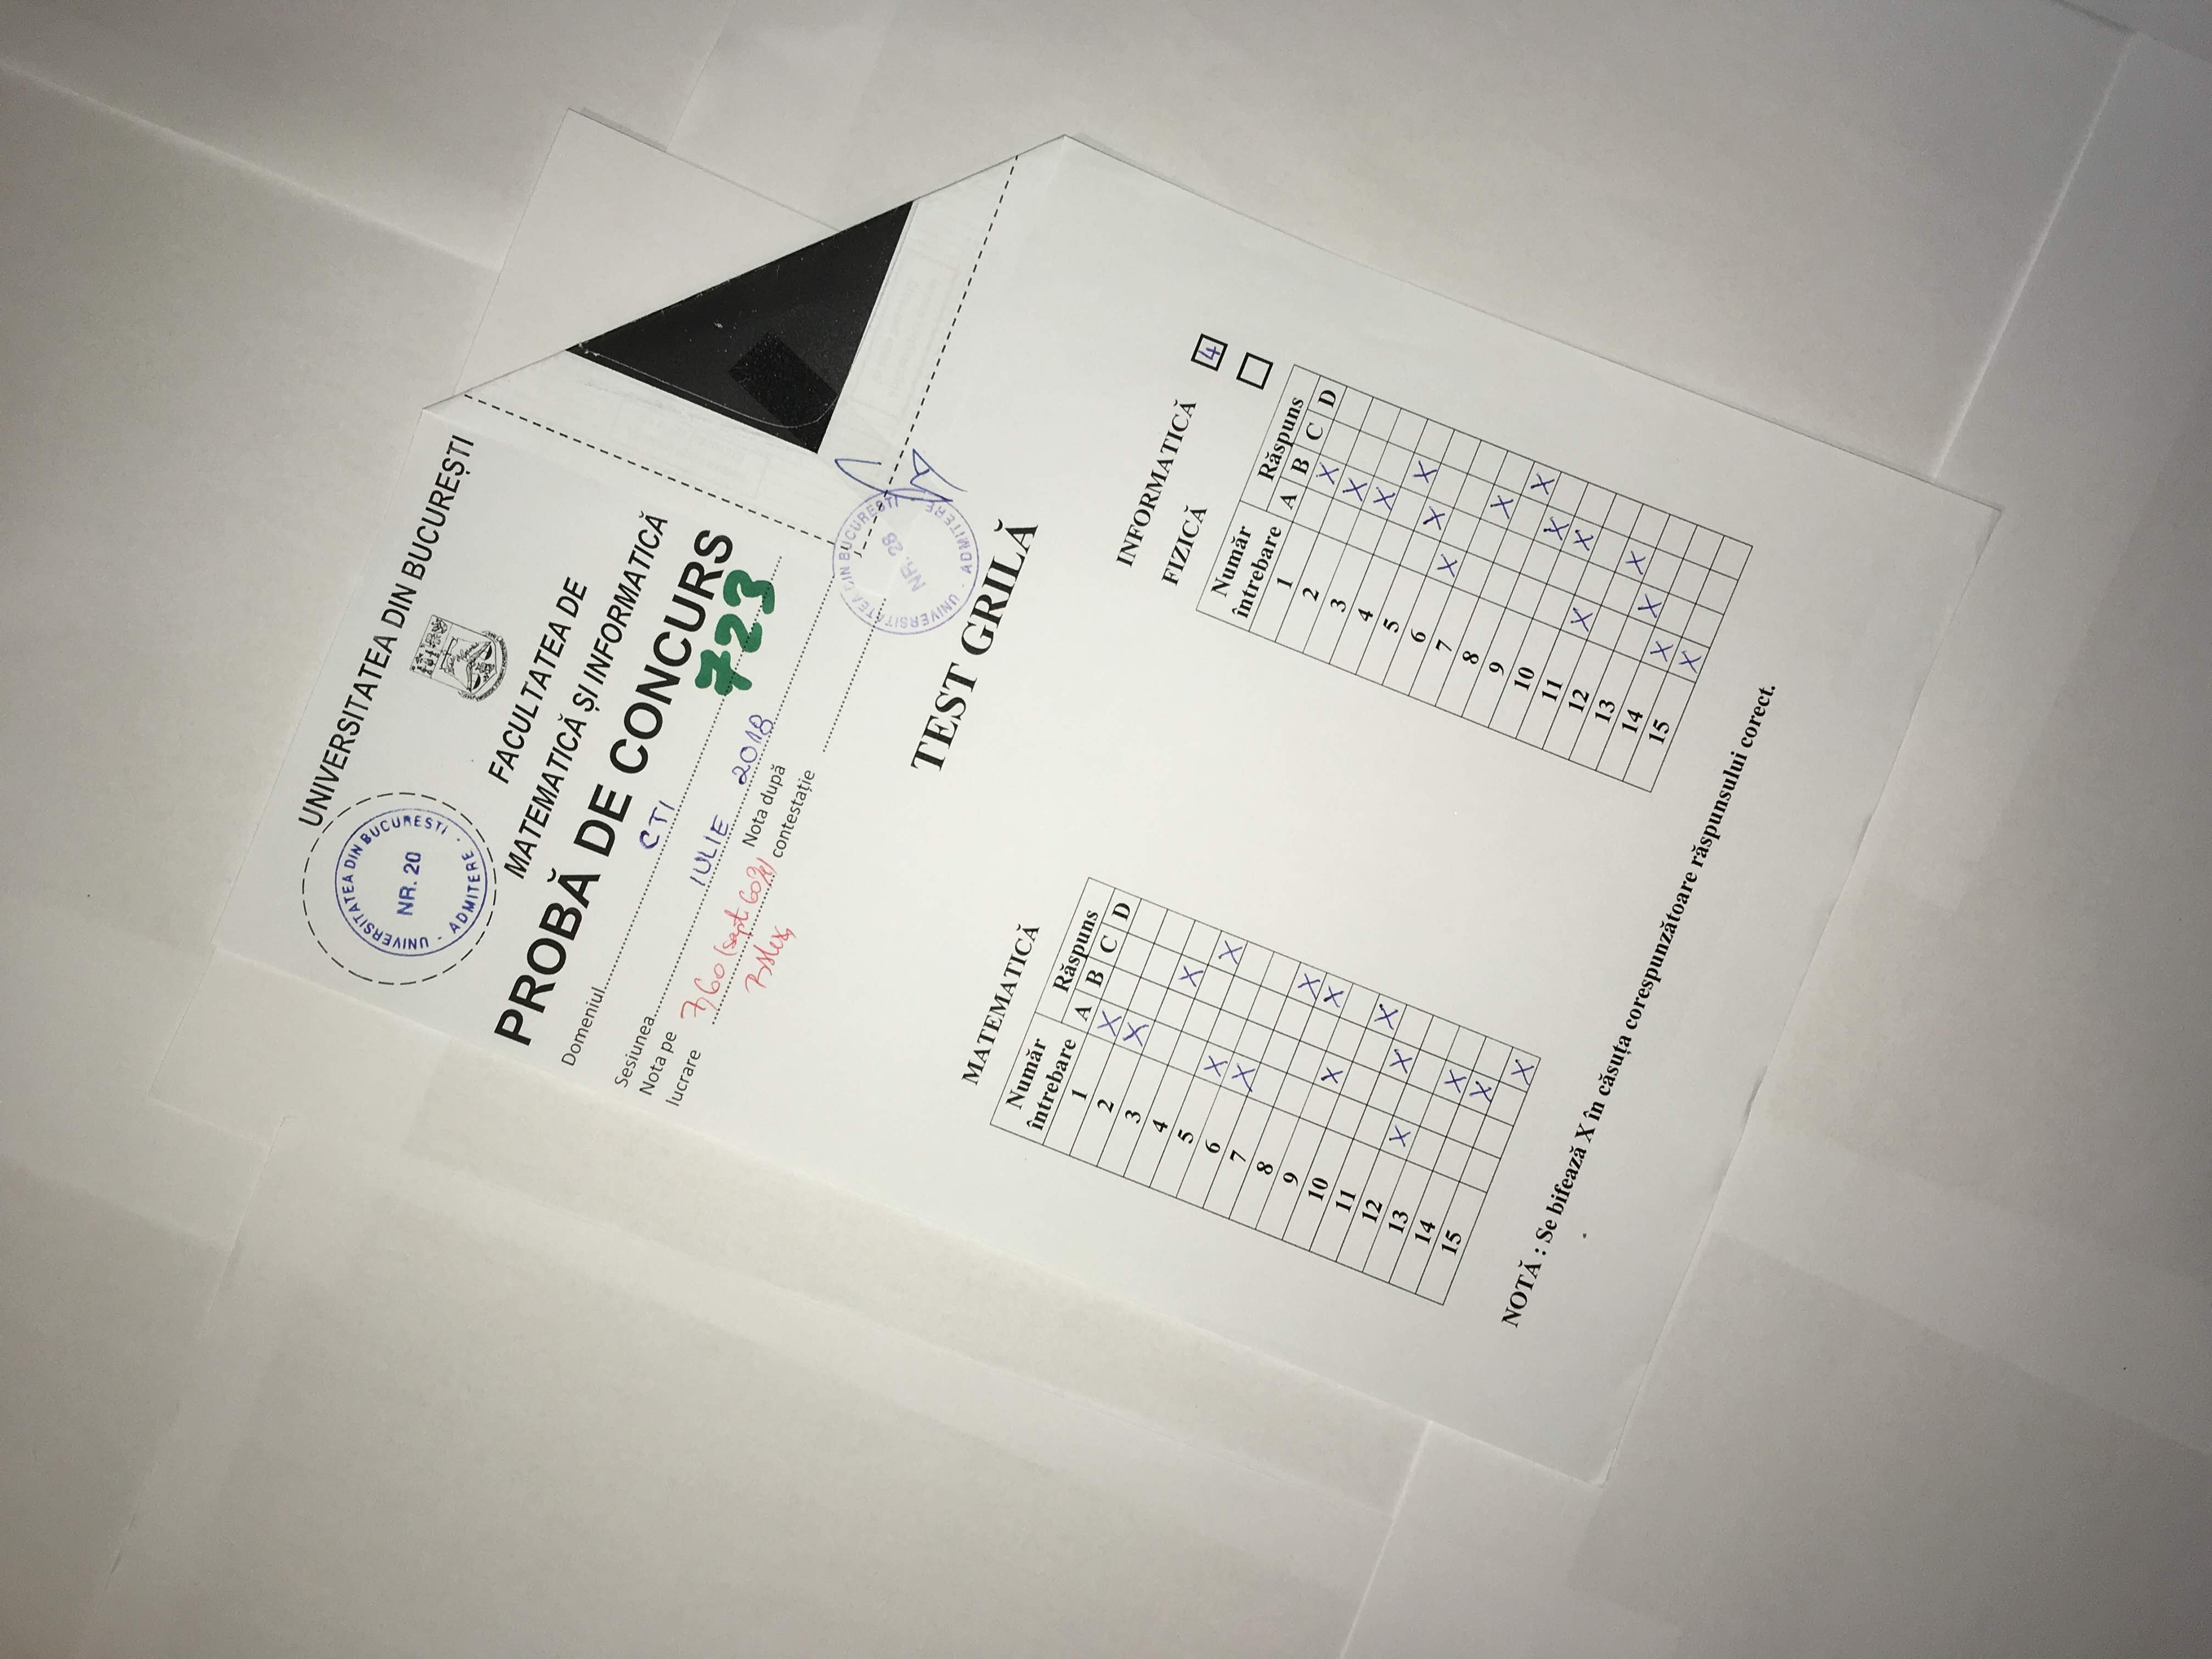 UNIVERSITATEA DIN BUCUREȘTI
UNIVERSITATEA DIN BUCUREȘTI
NR. 20
ADMITERE
FACULTATEA DE
MATEMATICĂ ȘI INFORMATICĂ
PROBĂ DE CONCURS
Domeniul CTI
723
Sesiunea IULIE 2018
Nota pe lucrare 7,60 (șapte 60%)
Nota după contestație
UNIVERSITATEA DIN BUCUREȘTI
NR. 28
ADMITERE
TEST GRILĂ
MATEMATICĂ
Număr întrebare Răspuns
A B C D
1 X
2 X
3 X
4 X
5 X
6 X
7 X
8 X
9 X
10 X
11 X
12 X
13 X
14 X
15 X
INFORMATICĂ 4
FIZICĂ
Număr întrebare Răspuns
A B C D
1 X
2 X
3 X
4 X
5 X
6 X
7 X
8 X
9 X
10 X
11 X
12 X
13 X
14 X
15 X
NOTĂ : Se bifează X în căsuța corespunzătoare răspunsului corect.